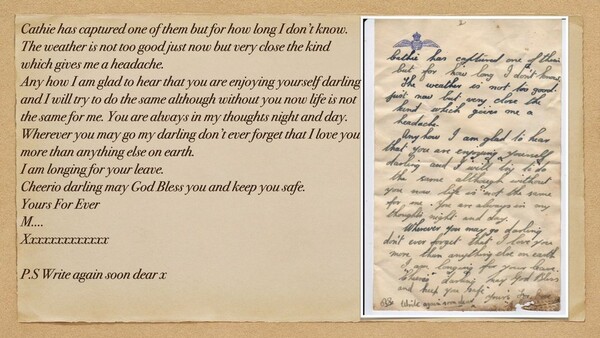 Cathie has captured one of them but for how long I don't know.
The weather is not too good just now but very close the kind
which gives me a headache.
Any how I am glad to hear that you are enjoying yourself darling
and I will try to do the same although without you now life is not
the same for me. You are always in my thoughts night and day.
Wherever you may go my darling don't ever forget that I love you
more than anything else on earth.
I am longing for your leave.
Cheerio darling may God Bless you and keep you safe.
Yours For Ever
M....
Xxxxxxxxxxxxx
P.S Write again soon dear x
2
Cathie has captured one of them
but for how long I don't know.
The weather is not too good
just now but very close the
kind which gives me a
headache.
Any how I am glad to hear
that you are enjoying yourself
darling and I will try to do
the same although without
you now life is not the same
for me. You are always in my
thoughts night and day.
Wherever you may go darling
don't ever forget that I love you
more than anything else on earth
I am longing for your leave.
Cheerio darling may God Bless
and keep you safe. Yours
P.S. Write again soon dear